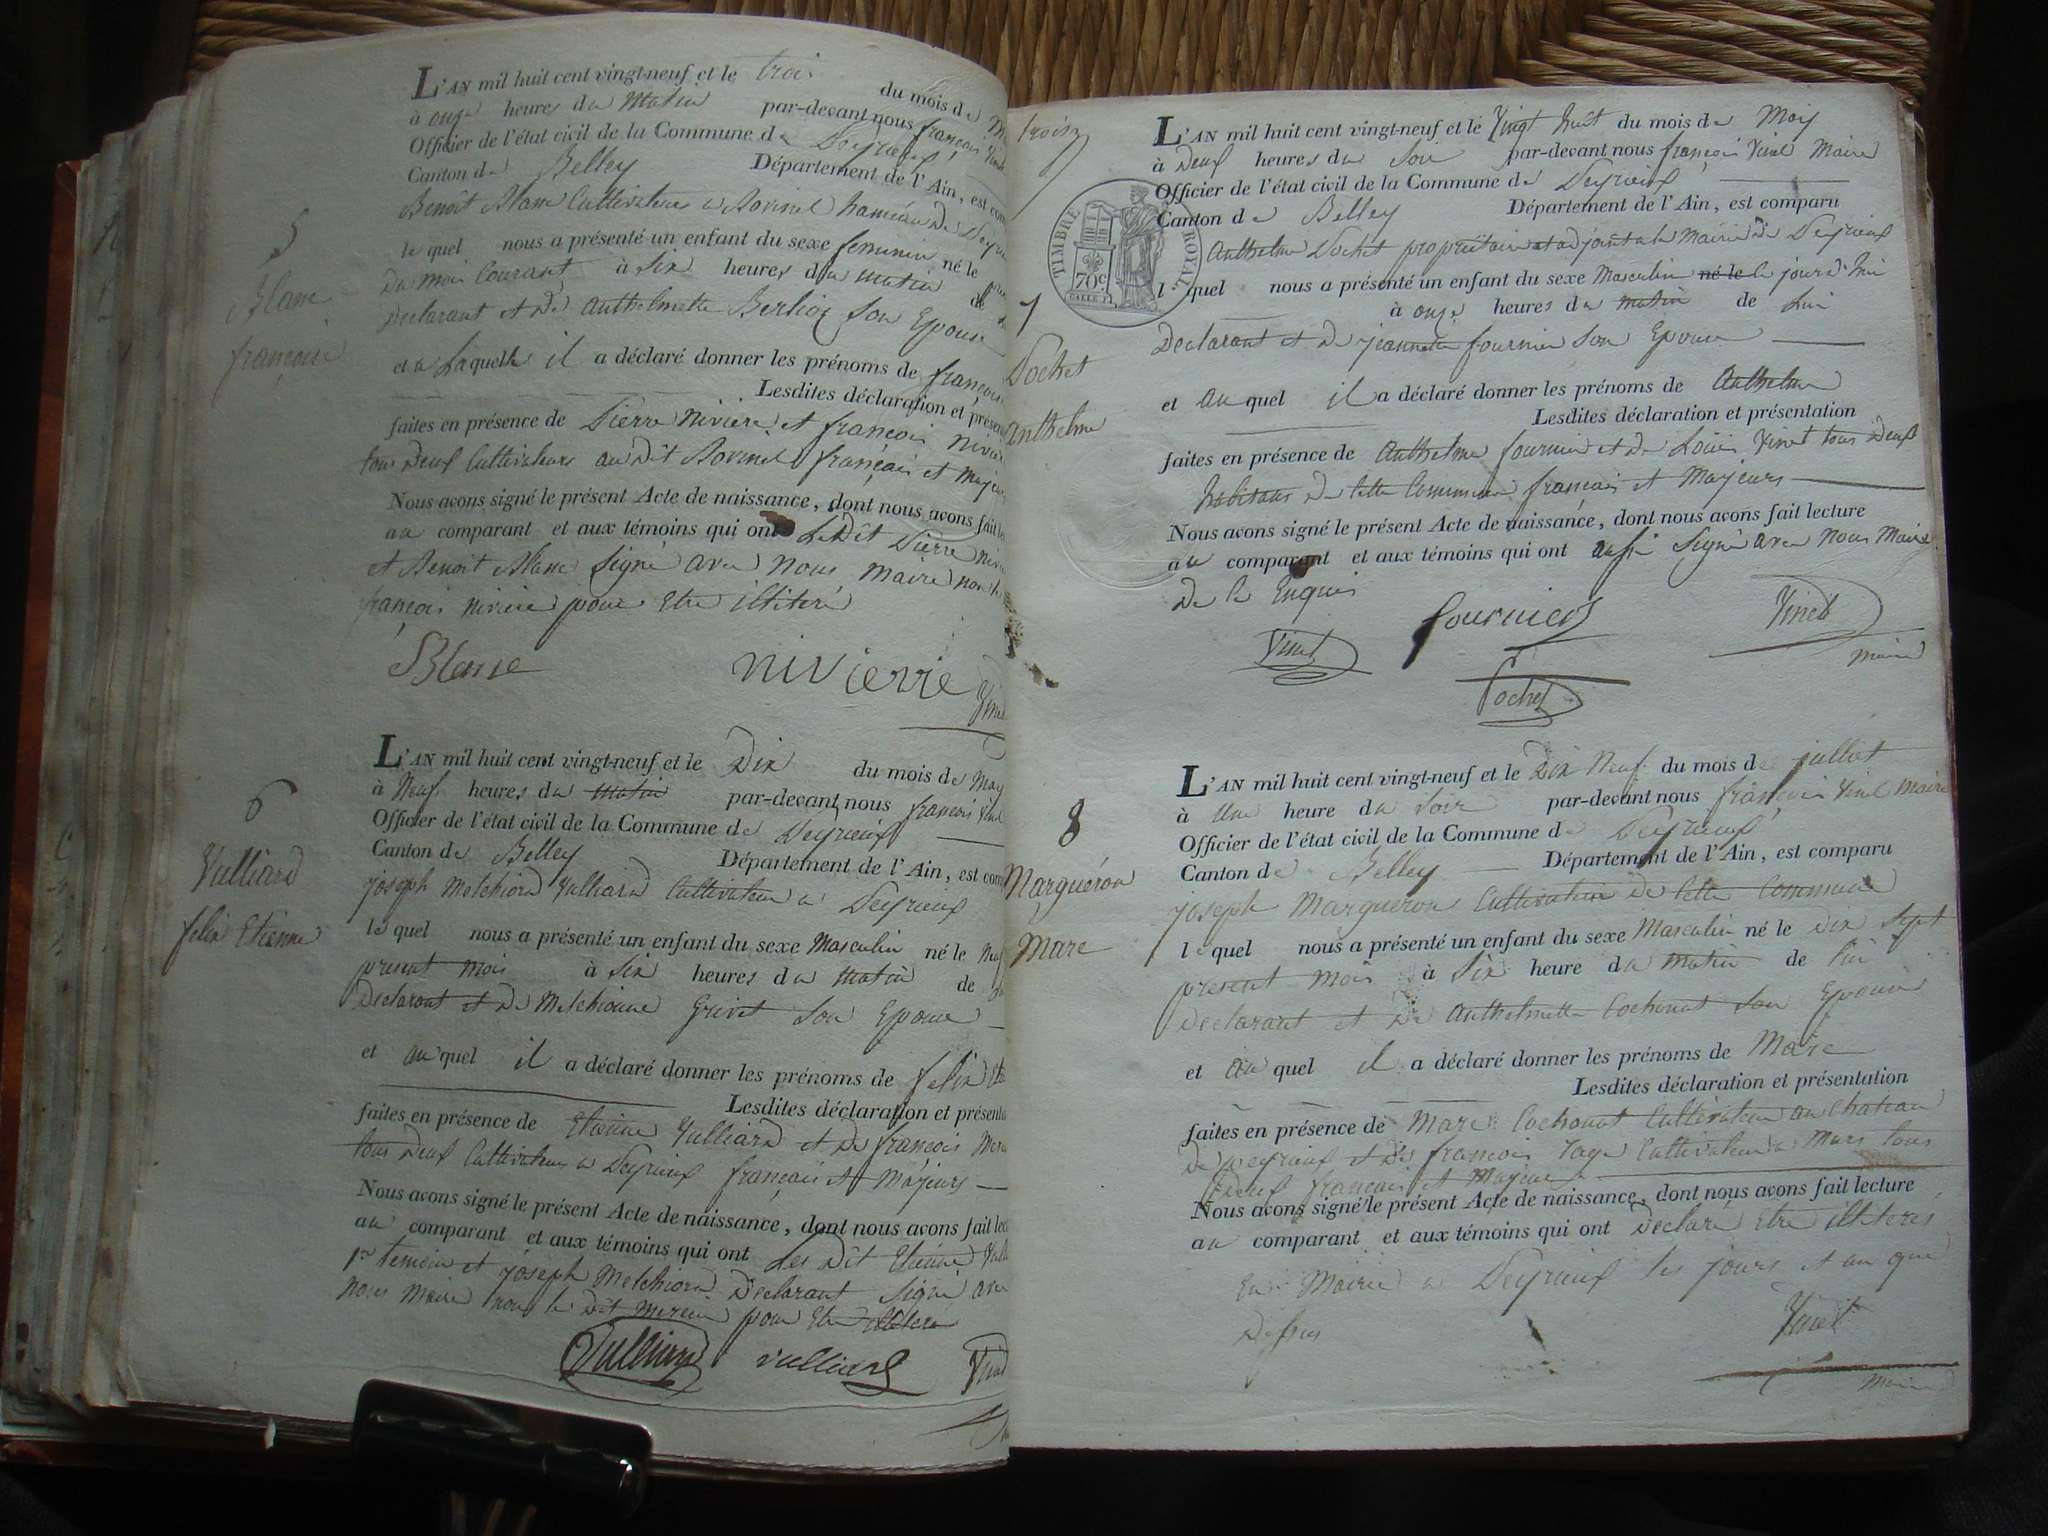 L'AN mil huit cent vingt-neuf et le trois du mois de
à onze heures du matin par-devant nous françois
Officier de l'état civil de la Commune de Peyrieux
Canton de Belley Département de l'Ain, est
Benoît Blanc Cultivateur a hameau de
le quel nous a présenté un enfant du sexe feminin né le
du mois Courant à six heures du matin de
Declarant et de Anthelmette Berlioz son Epouse
et a laquelle il a déclaré donner les prénoms de françoise
Lesdites déclaration et
faites en présence de Pierre Niviere et françois
tous Deux Cultivateurs au Dit français et
Nous avons signé le présent Acte de naissance, dont nous avons fait
au comparant et aux témoins qui ont Ledit Pierre
et Benoit Blanc signé avec nous maire non
françois Niviere pour Etre illiteré
Blanc nivierre
5
Blanc
françoise
L'AN mil huit cent vingt-neuf et le Dix du mois de may
à Neuf heures du matin par-devant nous françois Vinet
Officier de l'état civil de la Commune de Peyrieux
Canton de Belley Département de l'Ain, est
joseph Melchiord Vulliard Cultivateur a Peyrieux
le quel nous a présenté un enfant du sexe Masculin né le
present mois à six heures du matin de
Declarant et de Melchionne Grivet son Epouse
et au quel il a déclaré donner les prénoms de felix
Lesdites déclaration et
faites en présence de Etienne Vulliard et de françois
tous Deux Cultivateurs a Peyrieux français et Majeurs
Nous avons signé le présent Acte de naissance, dont nous avons fait
au comparant et aux témoins qui ont Les Dit Etienne
1er temoin et joseph Melchiord Declarant signé avec
nous maire non le Dit pour Etre illitere
Vulliard vulliard
6
Vulliard
felix Etienne
L'AN mil huit cent vingt-neuf et le Vingt huit du mois de May
à Deux heures du Soir par-devant nous françois Vinet Maire
Officier de l'état civil de la Commune de Peyrieux
Canton de Belley Département de l'Ain, est comparu
Anthelme Pochet propriétaire et adjoint a la Mairie de Peyrieux
l quel nous a présenté un enfant du sexe Masculin né le le jourd'hui
à onze heures du matin de lui
Declarant et de jeannette fournier son Epouse
et au quel il a déclaré donner les prénoms de Anthelme
Lesdites déclaration et présentation
faites en présence de Anthelme fournier et de Louis Vinet tous Deux
habitans de cette Commune français et Majeurs
Nous avons signé le présent Acte de naissance, dont nous avons fait lecture
au comparant et aux témoins qui ont aussi Signé avec nous Maire
De ce Enquis
Vinet fournier Vinet
maire
Pochet
TIMBRE ROYAL
70c
7
Pochet
Anthelme
L'AN mil huit cent vingt-neuf et le Dix Neuf du mois de juillet
à Une heure du Soir par-devant nous françois Vinet Maire
Officier de l'état civil de la Commune de Peyrieux
Canton de Belley Département de l'Ain, est comparu
joseph Marguéron Cultivateur de cette Commune
le quel nous a présenté un enfant du sexe Masculin né le Dix Sept
present mois à Six heure du matin de lui
Declarant et de Anthelmette Cochonat son Epouse
et au quel il a déclaré donner les prénoms de Marc
Lesdites déclaration et présentation
faites en présence de Marc Cochonat Cultivateur au Chateau
De peyrieux et de françois Cultivateur a Murs tous
Deux français et Majeurs
Nous avons signé le présent Acte de naissance, dont nous avons fait lecture
au comparant et aux témoins qui ont Declaré Etre illiteres
En Mairie a Peyrieux les jours et an que
Dessus
Vinet
maire
8
Marguéron
Marc